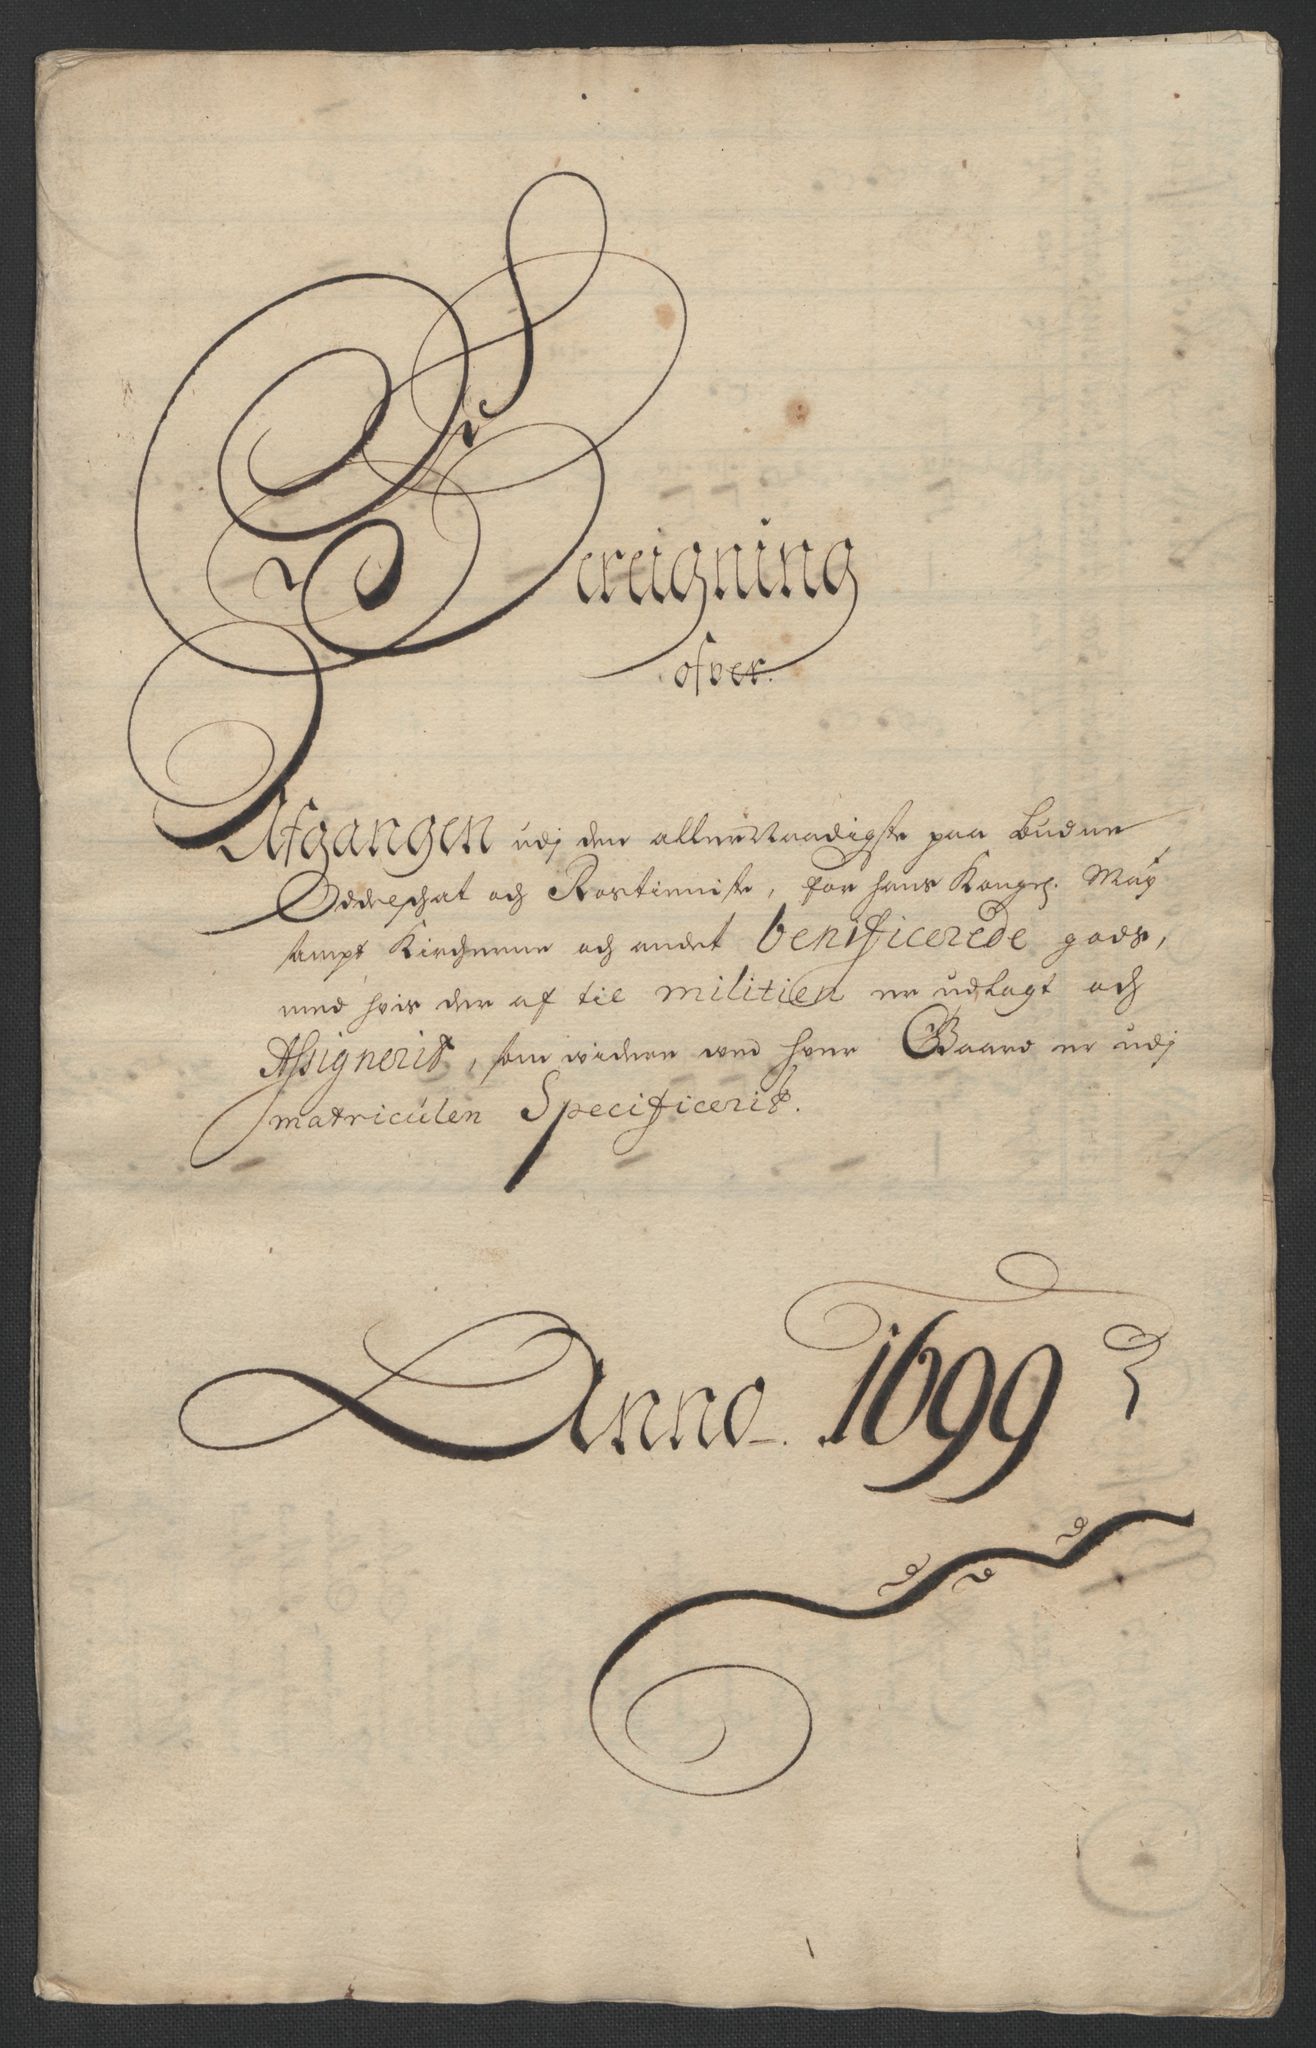 Bereigning
ofver.
Afgangen udj den allernaadigste paa budne
Oddelschat och Rostienniste, for hans Kongel. May
sampt Kircherne och andet benificerede gods,
med hvis der af til militien er udlagt och
Assignerit, som widere wed hver Gaard er udj
matriculen Specificerit.
Anno. 1699